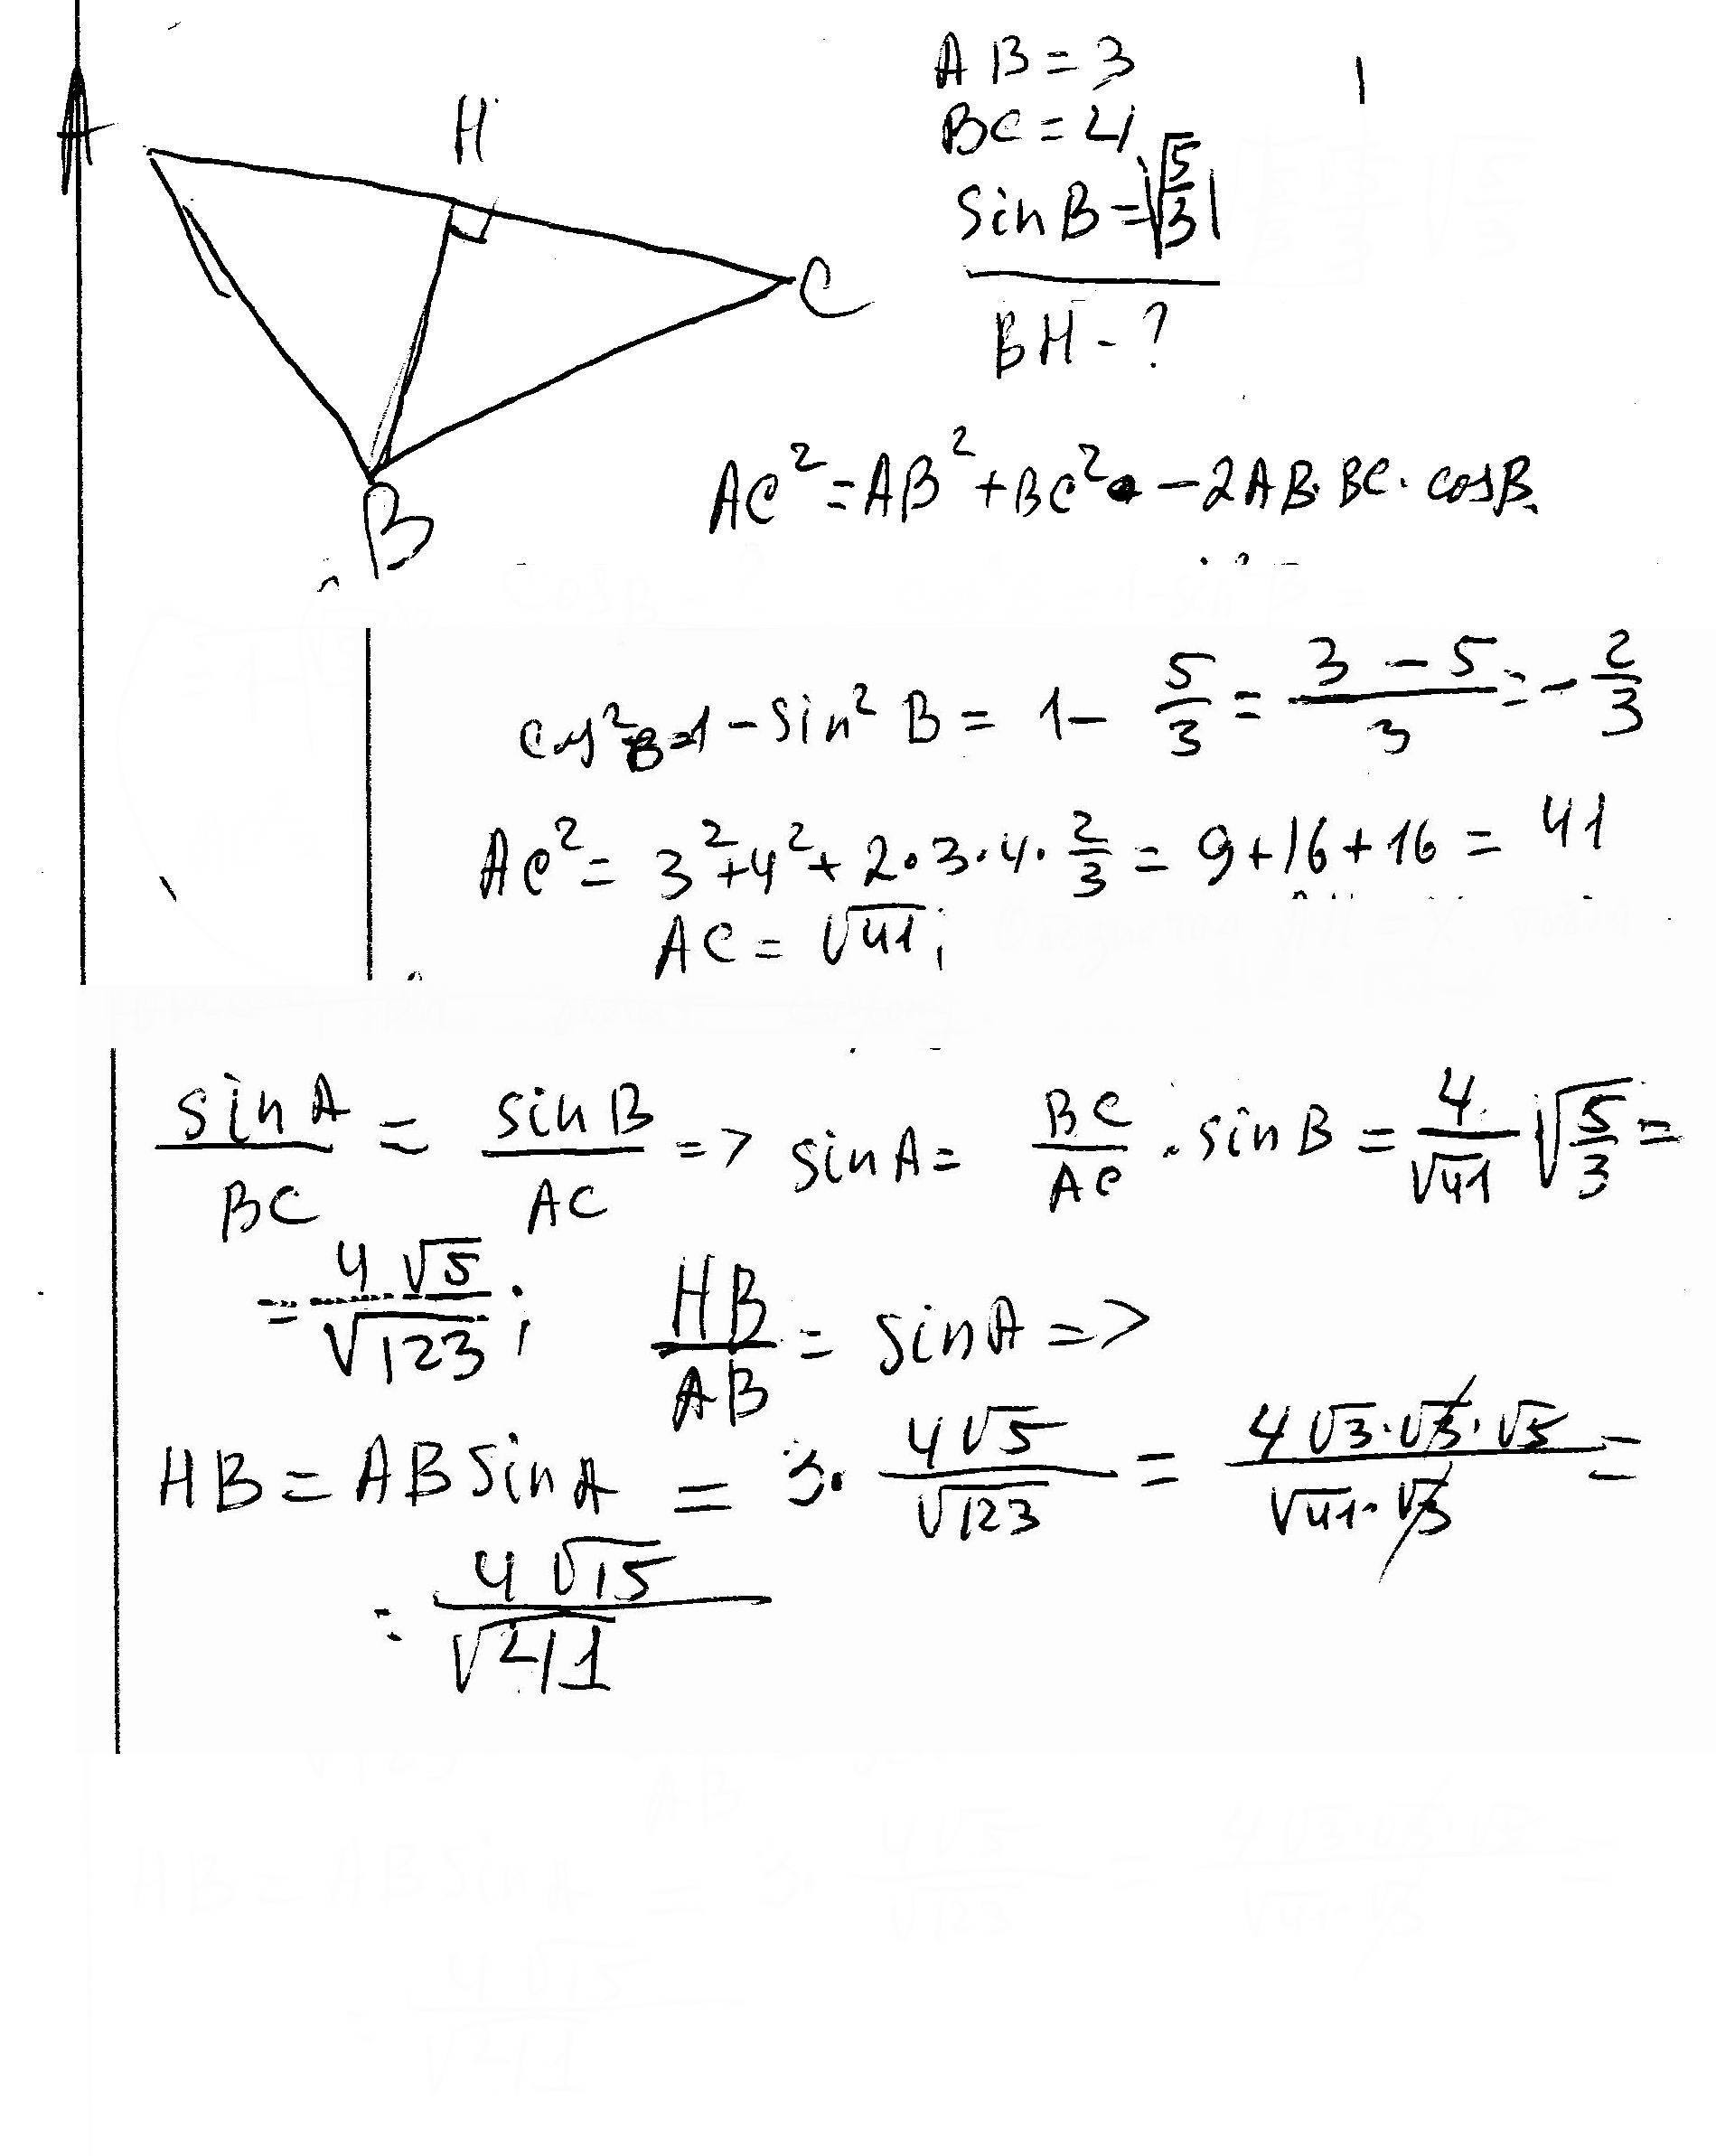 A
H
C
B
AB = 3
BC = 4
sin B = √(5/3)
BH - ?
AC² = AB² + BC² - 2AB·BC·cosB.
cos²B = 1 - sin² B = 1 - 5/3 = (3 - 5)/3 = - 2/3
AC² = 3² + 4² + 2·3·4·2/3 = 9 + 16 + 16 = 41
AC = √41;
sin A/BC = sin B/AC => sin A = BC/AC · sin B = 4/√41 √(5/3) =
= 4√5/√123; HB/AB = sin A =>
HB = AB sin A = 3· 4√5/√123 = 4√3·√3·√5/√41·√3 =
= 4√15/√41